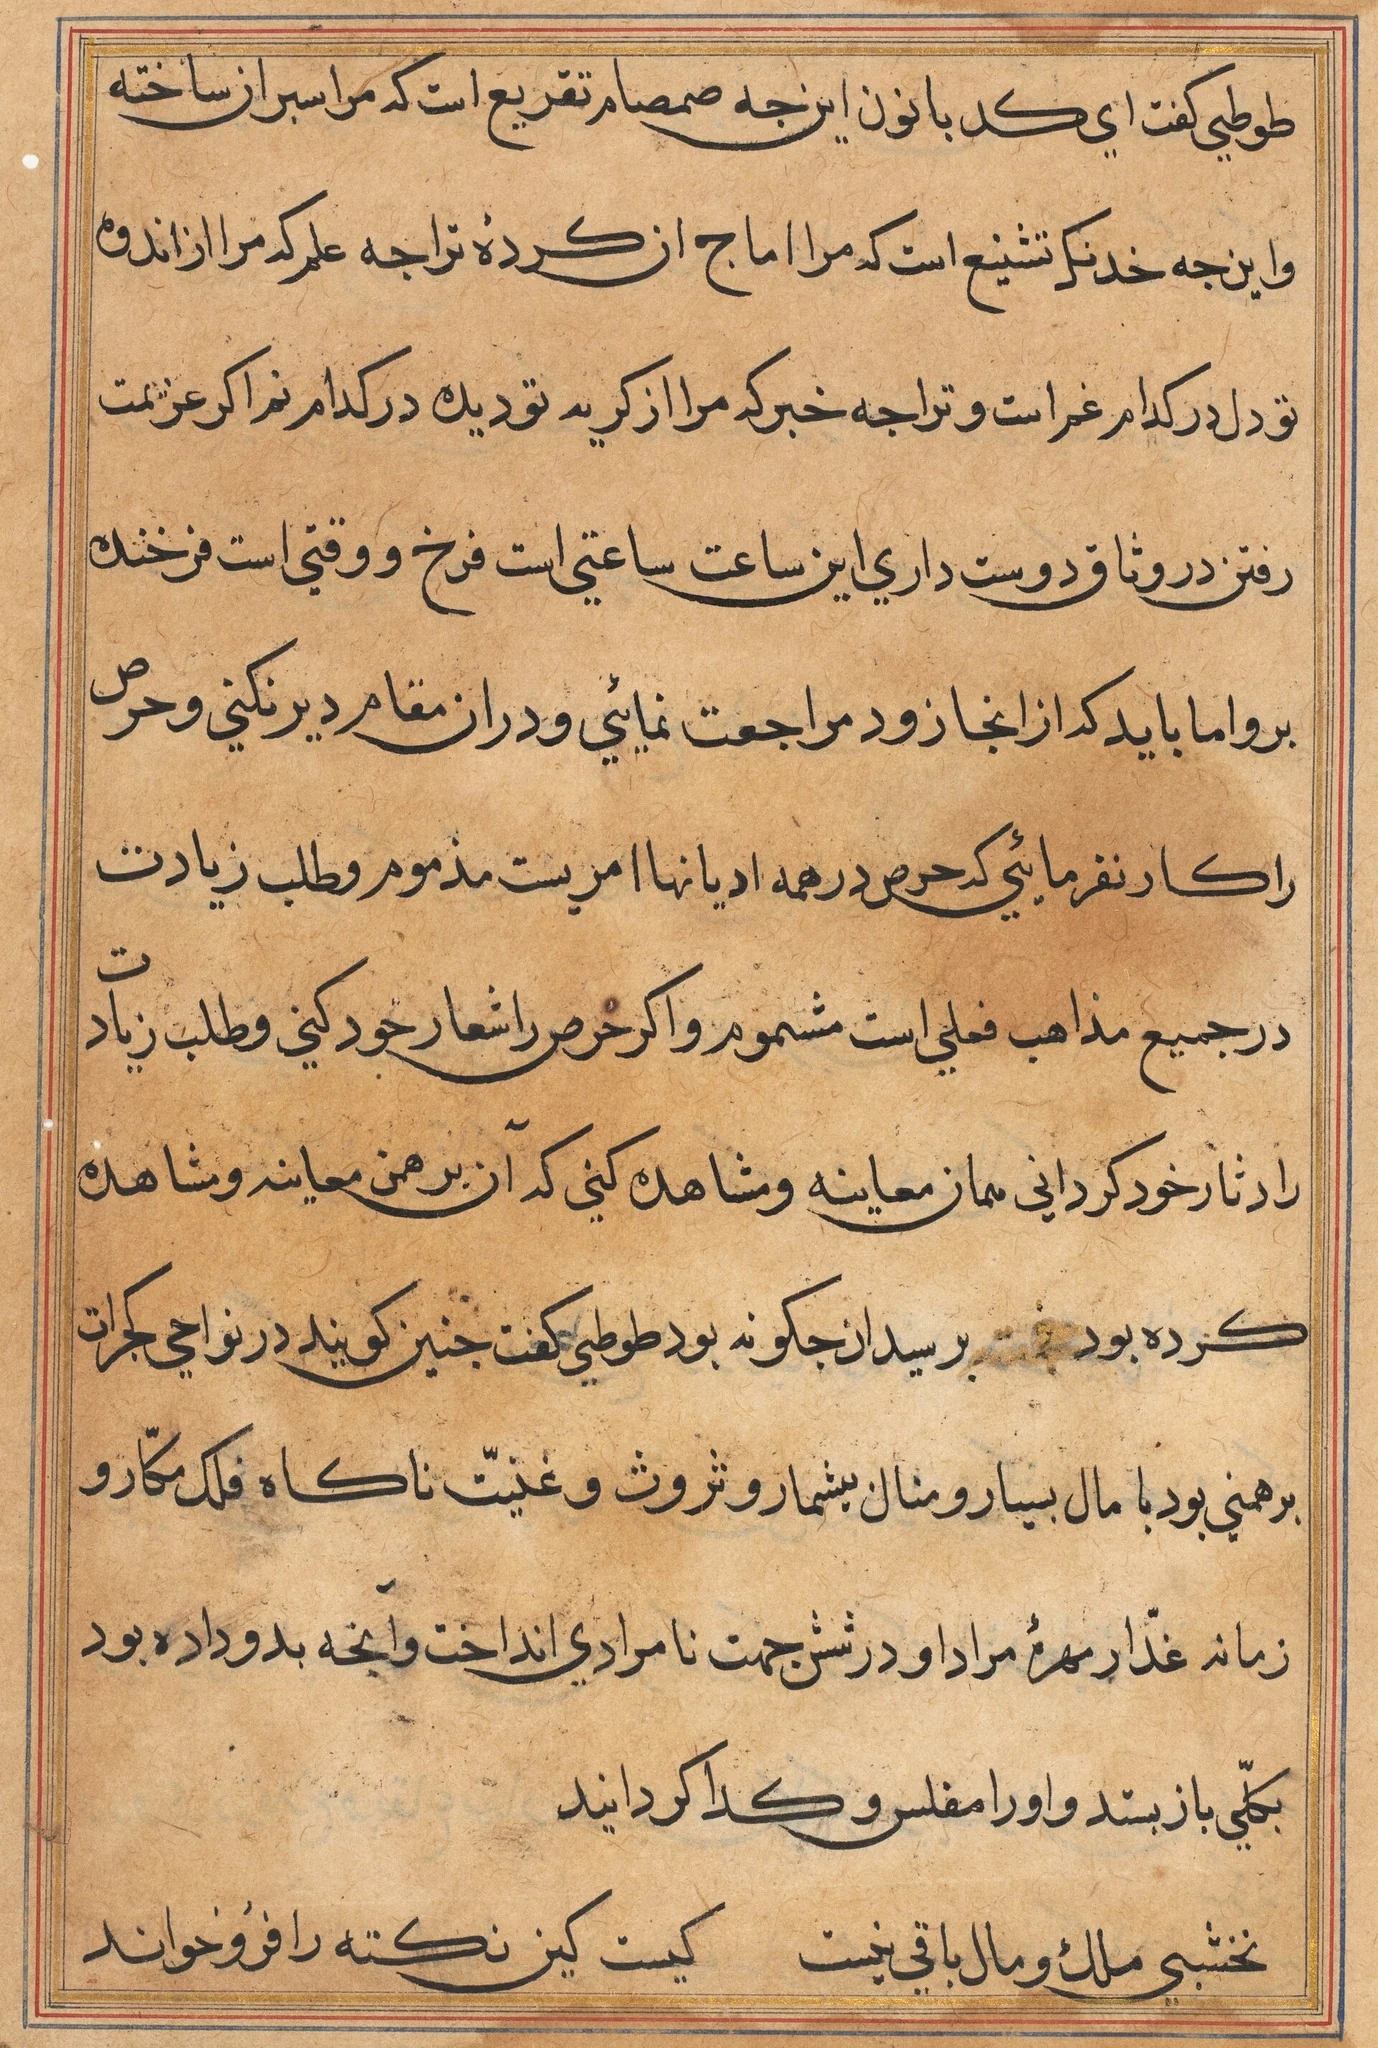 طوطي كفت اي كد بانون اين جه صمصام تقريع است كه مرا سبر ان ساخته
و اين جه خدنك تشنيع است كه مرا اماج ان كردۀ ترا جه علم كه مرا از اندوه
تو دل در كدام غم است و ترا جه خبر كه مرا از كريه تو ديده در كدام نم اكر عزيمت
رفتن در وثاق دوست داري اين ساعت ساعتي است فرخ و وقتي است فرخنده
برو اما بايد كه از انجا زود مراجعت نمايئي و در ان مقام دير نكني و حرص
را كار نفرمايئي كه حرص در همه اديانها امريست مذموم و طلب زيادت
در جميع مذاهب فعلي است مشموم و اكر حرص را شعار خود كني و طلب زيادت
را دثار خود كرداني همان معاينه و مشاهده كني كه آن برهمن معاينه و مشاهده
كرده بود برسيد ان جكونه بود طوطي كفت جنين كويند در نواحي كجرات
برهمني بود با مال بسيار و منال بيشمار و ثروث و غنيّت ناكاه فلك مكّار و
زمانه غدّار مهرۀ مراد او در شش جهت نامرادي انداخت و آنجه بدو داده بود
بكلّي باز بستد و او را مفلس و كدا كردانيد
نخشبي ملك و مال باقي نيست كيست كين نكته را فرُو خواند